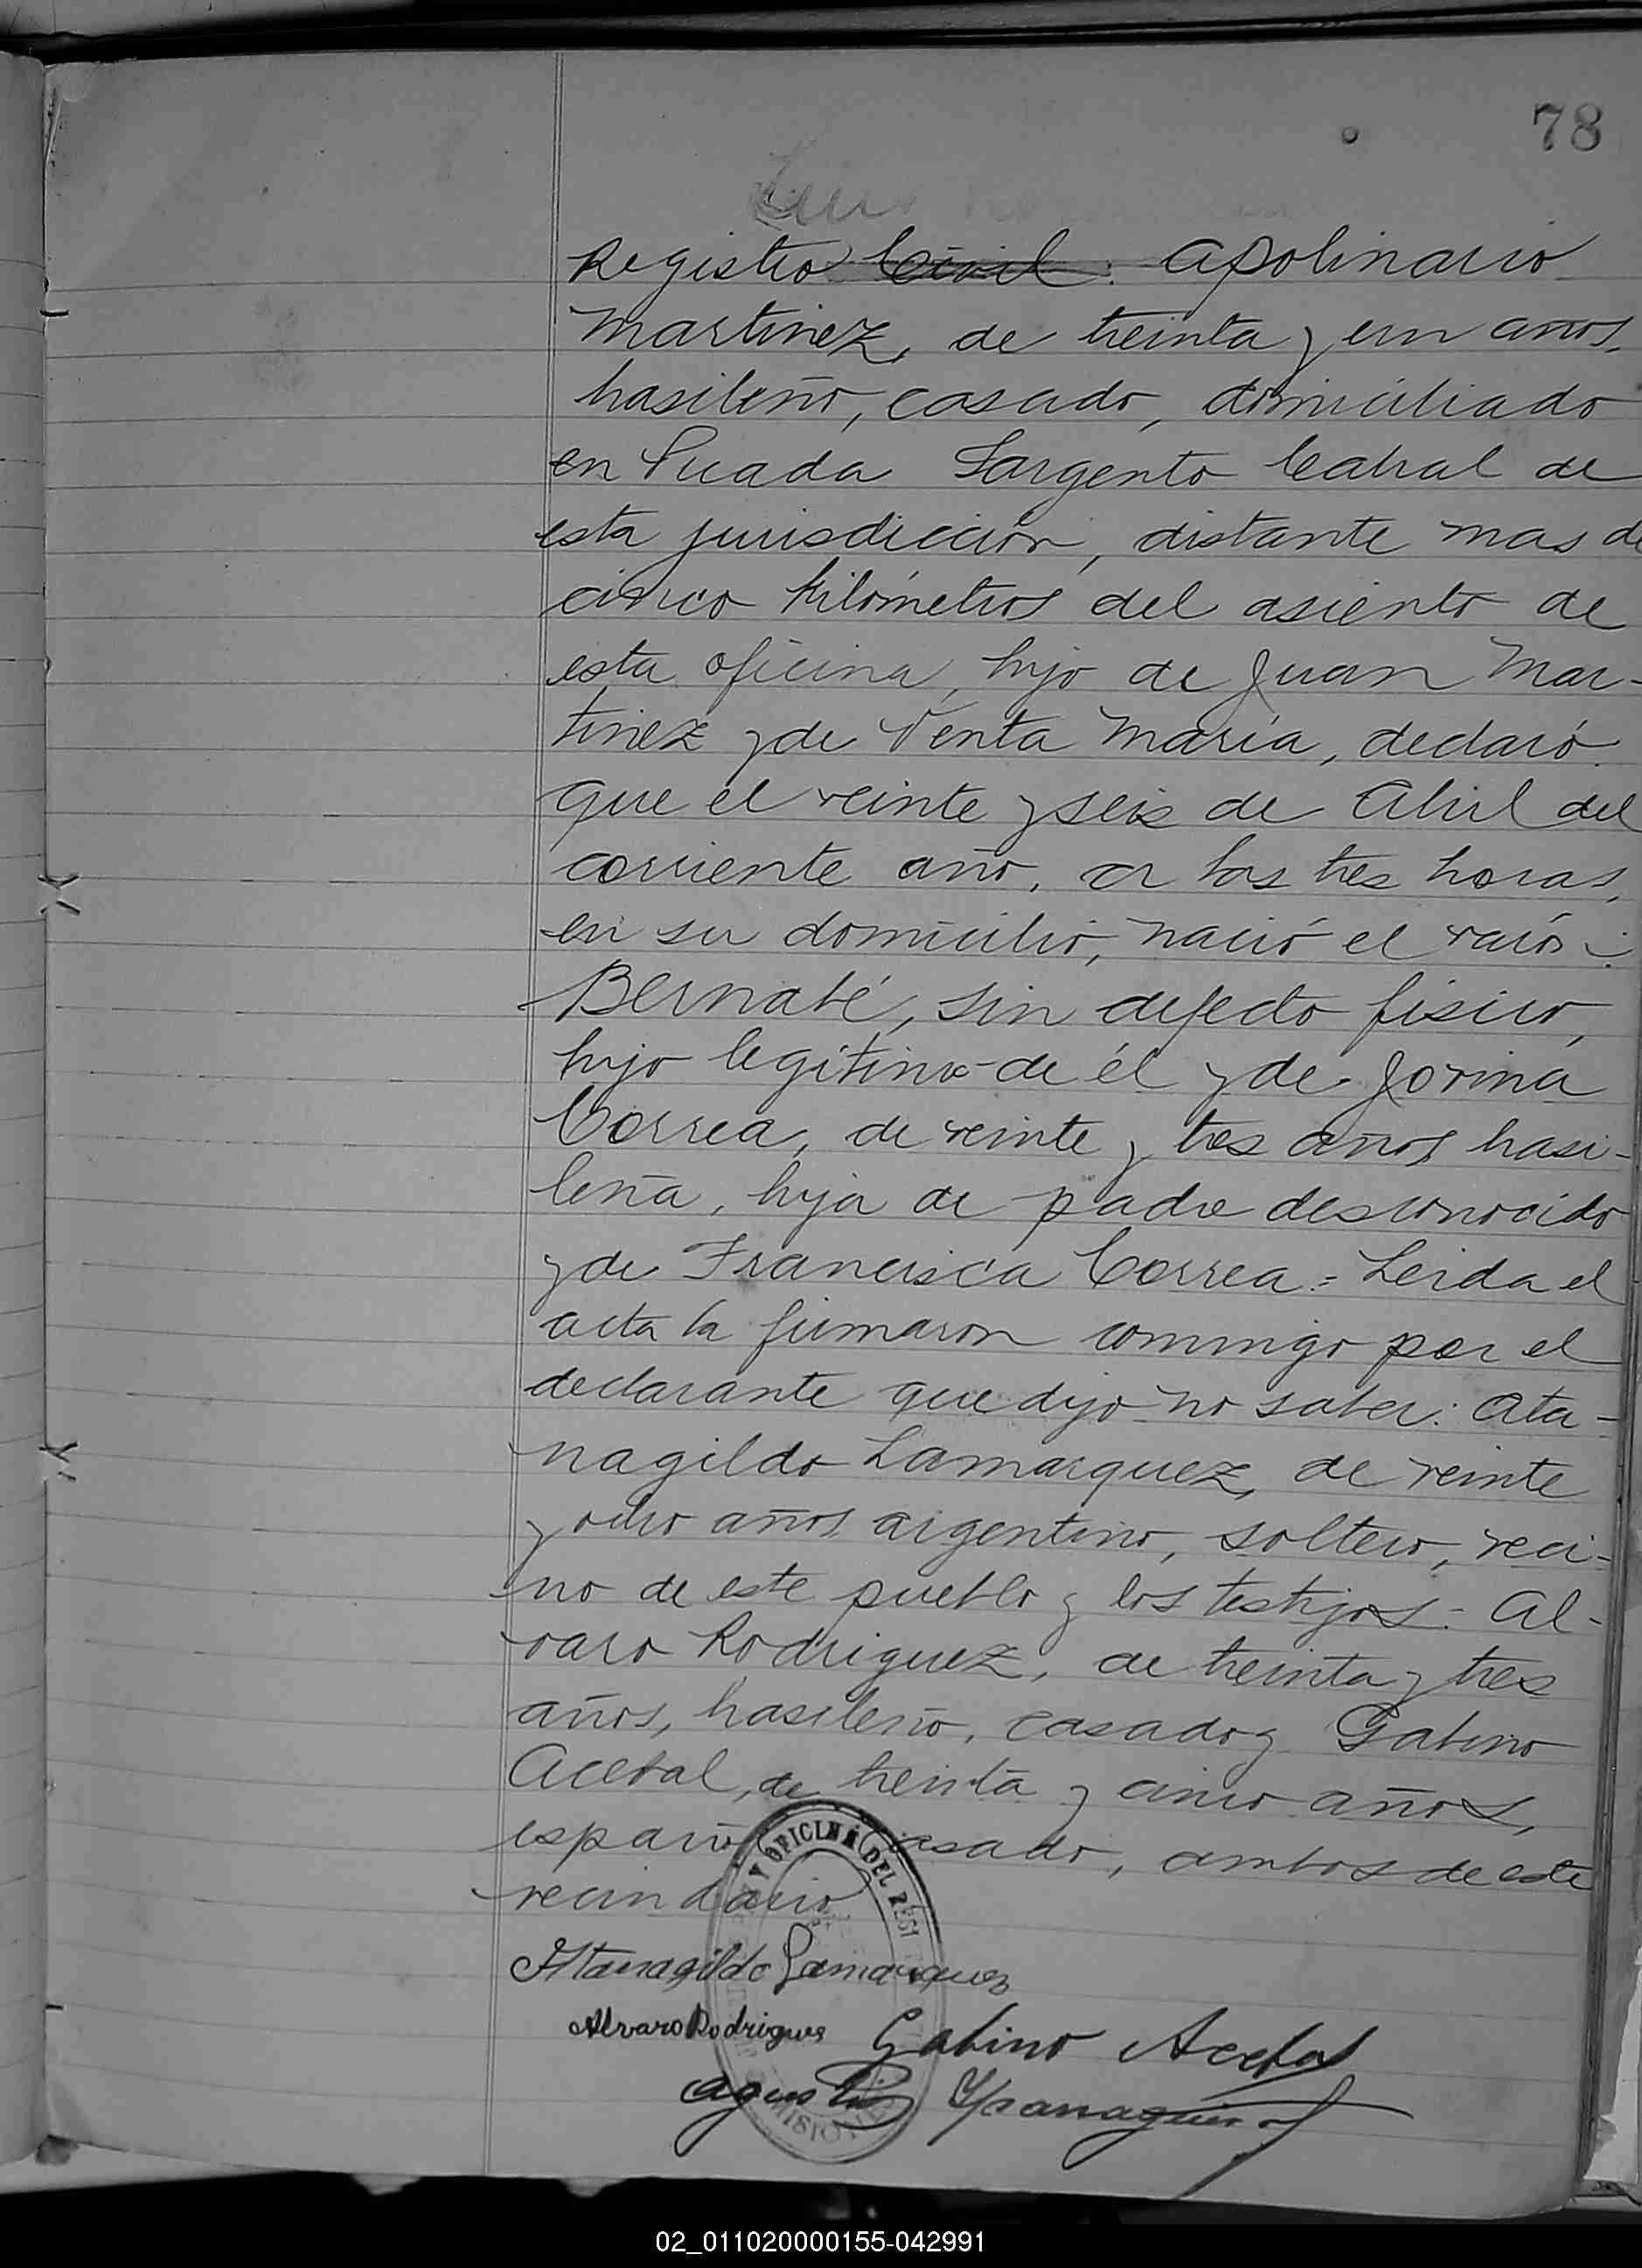 78
Registro Civil: Apolinario
Martinez, de treinta y un años,
brasileño, casado, domiciliado
en Picada Sargento Cabral de
esta jurisdiccion, distante mas de
cinco kilómetros del asiento de
esta oficina, hijo de Juan Mar-
tinez y de Venta María, declaró
que el veinte y seis de Abril del
corriente año, a las tres horas,
en su domicilio, nació el varón:
Bernabé, sin defecto fisico,
hijo legítimo de él y de Jovina
Correa, de veinte y tres años brasi-
leña, hija de padre desconocido
y de Francisca Correa.= Leida el
acta la firmaron conmigo por el
declarante que dijo no saber: Ata-
nagildo Lamarquez, de veinte
y ocho años argentino, soltero, veci-
no de este pueblo y los testigos: Al-
varo Rodriguez, de treinta y tres
años, brasileño, casado y Gabino
Acebal, de treinta y cinco años,
español casado, ambos de este
vecindario
Atanagildo Lamarquez
Alvaro Rodrigues Gabino Acebal
Agustin
Y OFICINA DEL REGI
MISIONES
02_011020000155-042991